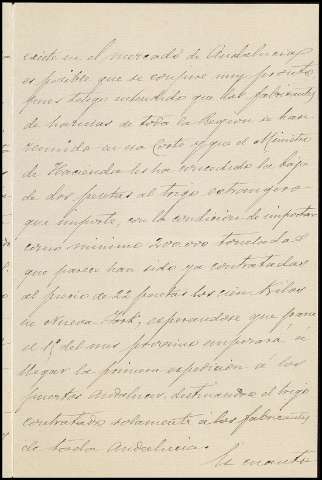 existe en el mercado de Andalucia,
es posible que se compre muy pronto
pues tengo entendido que los fabricantes
de harinas de toda la Region se han
reunido en esa Corte y que el Ministro
de Hacienda les ha concedido la baja
de dos pesetas al trigo extrangero
que importe, con la condición de importar
como mínimo 200.000 toneladas
que parece han sido ya contratadas
al precio de 22 pesetas los cien Kilos
en Nueva York; esperandose que para
el 15 del mes proximo empezará á
llegar la primera expedicion á los
puertos andaluces, destinandose el trigo
contratado solamente á los fabricantes
de toda Andalucia.
En cuanto